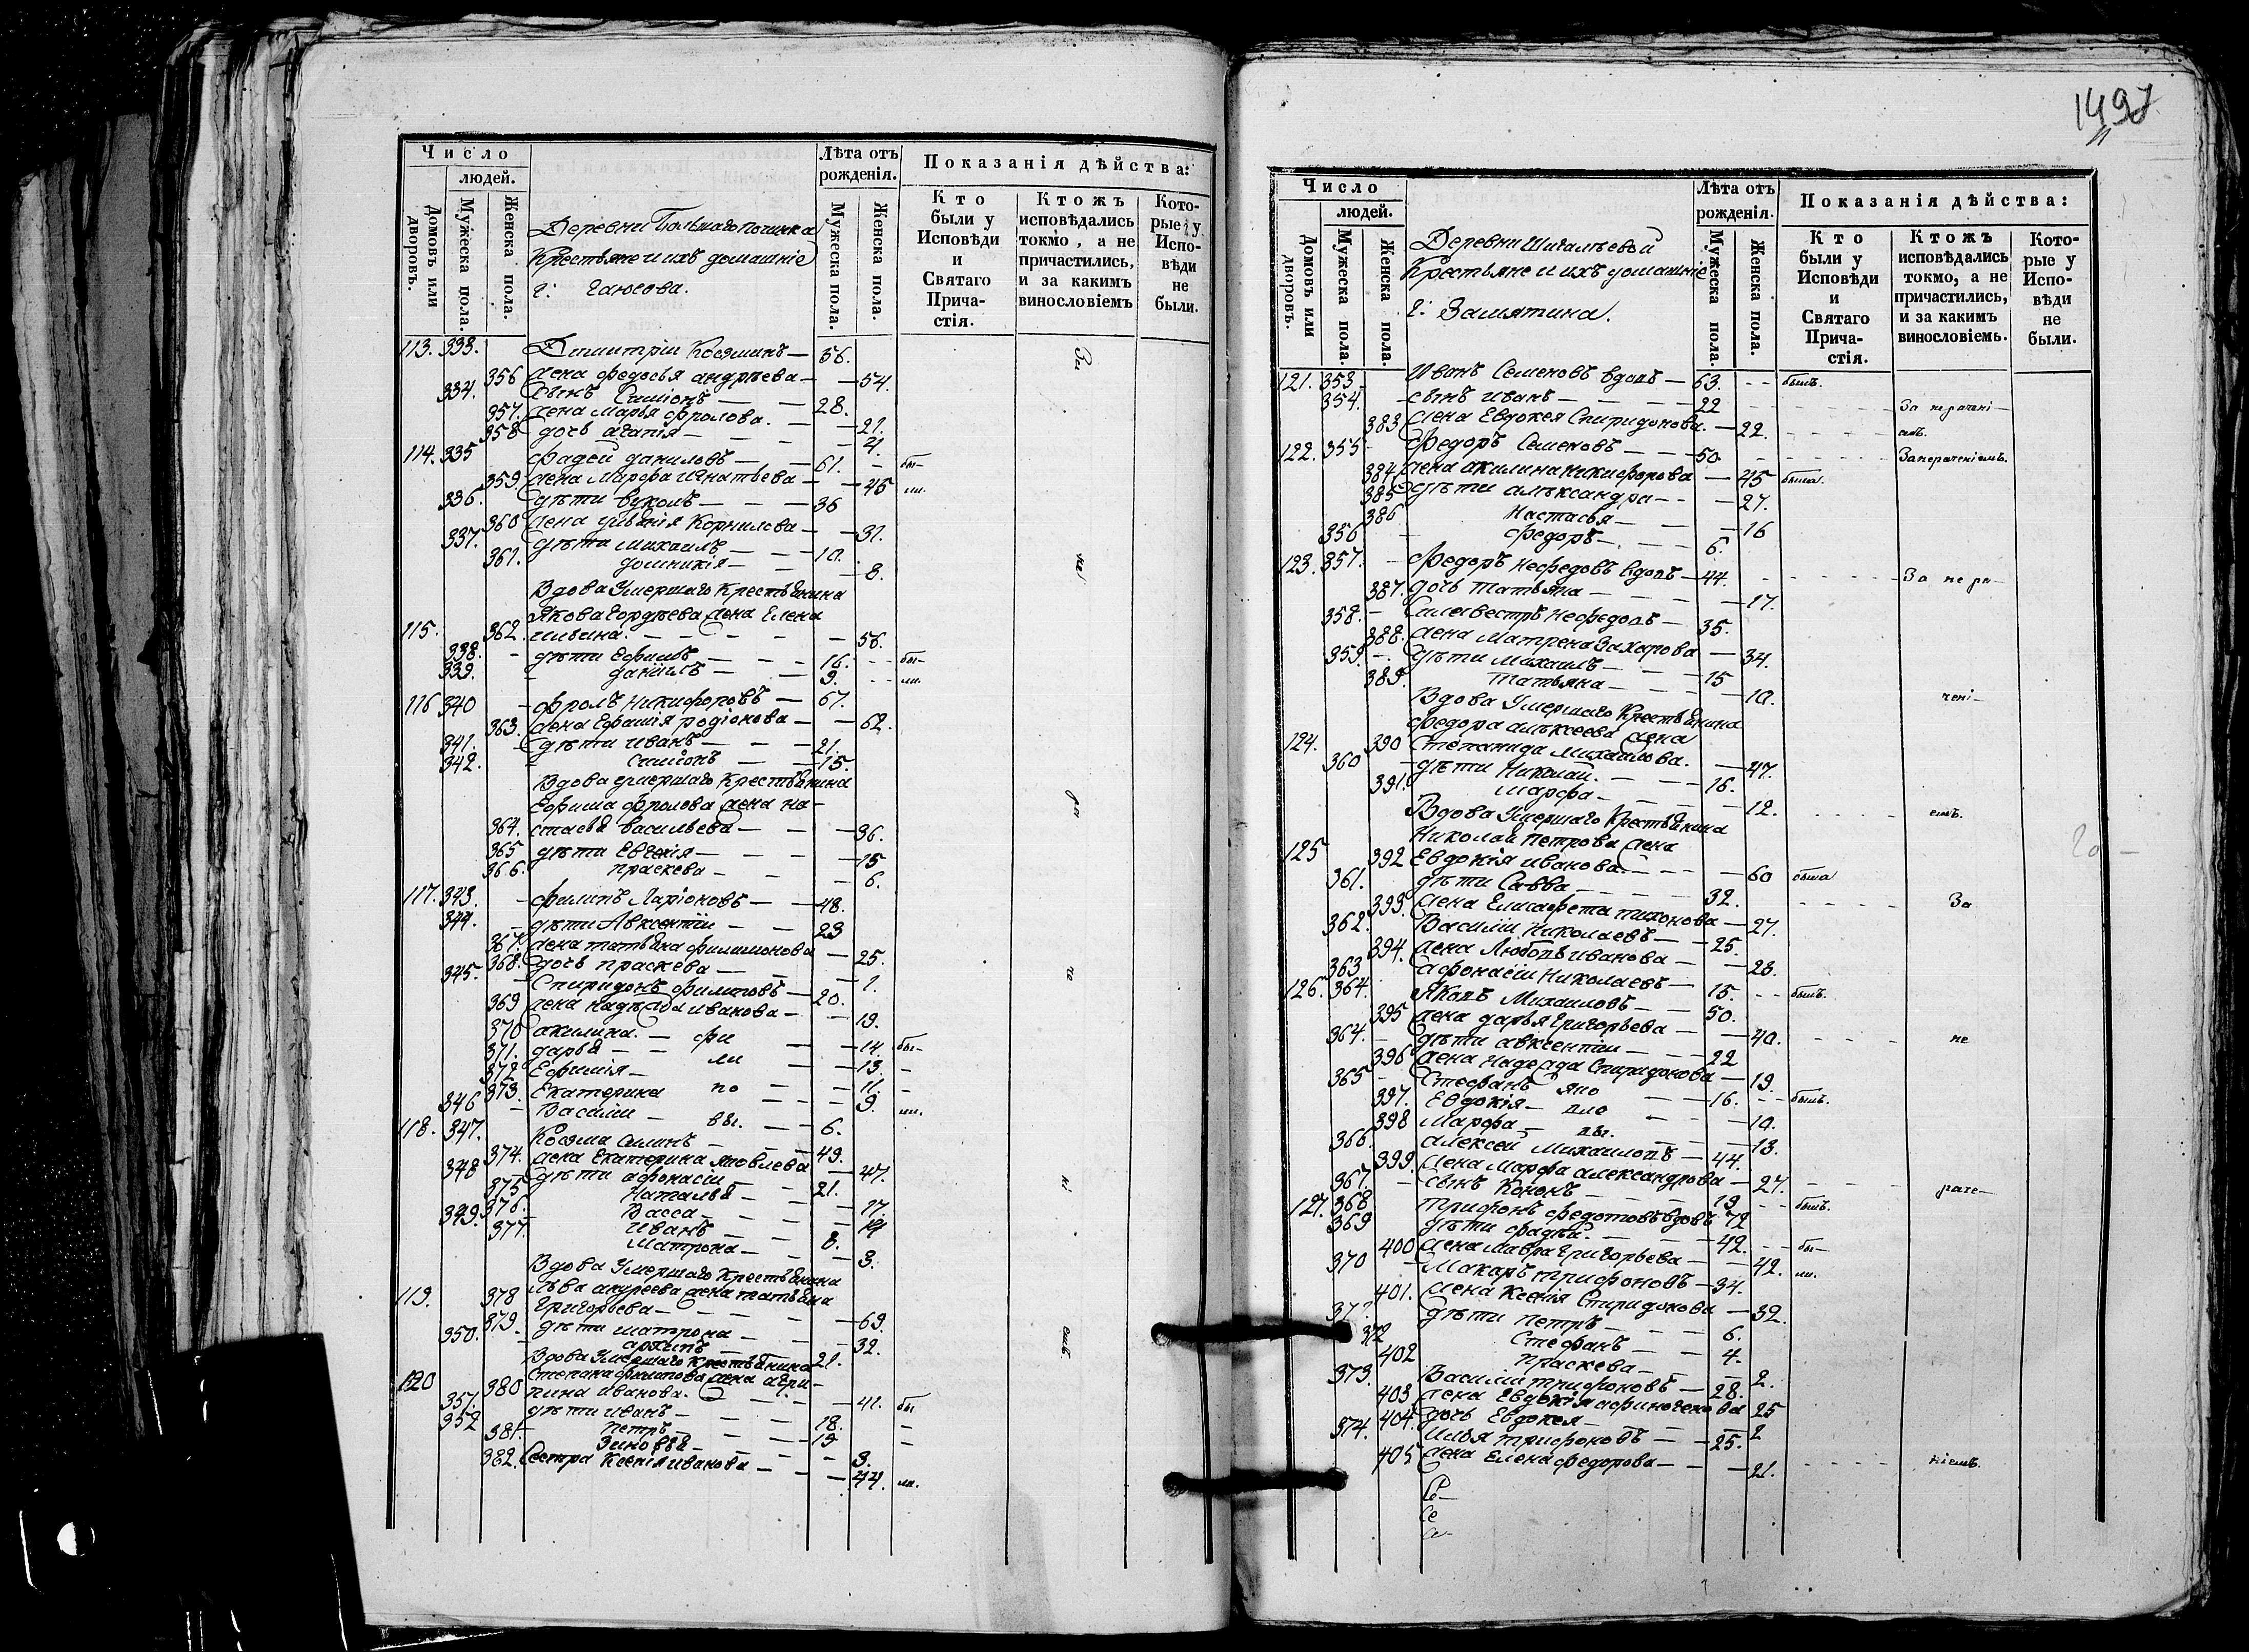 1497
Число
людей.
Домовъ или дворовъ.
Мужеска пола.
Женска пола.
Деревни Большаго починка
Крестьяне и ихъ домашніе
г: Гаюсова.
Лѣта отъ рожденія.
Мужеска пола.
Женска пола.
Показанія дѣйства:
Кто были у Исповѣди и Святаго Прича-стія.
Ктожъ исповѣдались токмо, а не причастились, и за какимъ винословіемъ
Кото-рые у Испо-вѣди не были.
113. 333. Димитріи Козминъ — 56. За
356 жена федосья андрѣева — 54.
334. Сынъ Симіонъ — 28.
357. жена марья фролова. — 21.
358 дочь агапія — 4.
114. 335 фадей даниловъ — 61. — бы—
359. жена Марфа игнатьева — 45 ли.
336. дѣти вуколъ — 36
360 жена Корнилова — 31.
337. дѣти михаилъ — 10.
361. домникія — 8. не
Вдова Умершаго Крестьянина
Якова гордѣева жена Елена
115. 362. ильина. — 56.
338. дѣти Ефимъ — 16. бы—
339. даніилъ — 9. ли.
116 340 фролъ Никифоровъ — 67.
363. жена Ефимія родіонова — 62.
341. дѣти иванъ — 21.
342. симіонъ — 15.
Вдова умершаго крестьянина
Ефима фролова жена на—
364. стасья васильева — 36. ра
365 дѣти Евгенія — 15
366. праскева — 6.
117. 343. филипъ Ларіоновъ — 48.
344. дѣти Авксентіи — 23
367. жена татьяна филимонова — 25.
368. дочь праскева — 1. че
345. Спиридонъ филиповъ — 20.
369 жена надѣжда иванова — 19.
370 акилина. — фи — 14. бы—
371. дарья — ли — 13. —
372 Ефимія — 11. —
373. Екатерина по — 9. ли.
346 Василіи — вы. — 6.
118. 347. Козма Силинъ — 49.
374. жена Екатерина яковлева — 47.
348 дѣти афонасіи — 21. ні
375 Наталья — 17.
376. Васса — 14
349. иванъ — 8.
377. матрона — 3.
Вдова Умершаго Крестьянина
Льва андреева жена татьяна
119. 378 Григорьева — 69.
379. дѣти матрона — 32. емъ.
350. архипъ — 21.
Вдова Умершаго Крестьянина
Степана филипова жена агри—
120 380 пина иванова. — 41. бы
351. дѣти иванъ — 18. —
352 петръ — 13 —
381. Зиновья — 3.
382. Сестра Ксенія иванова — 44. ли.
Число
людей.
Домовъ или дворовъ.
Мужеска пола.
Женска пола.
Деревни Шигалѣевой
Крестьяне и ихъ домашніе
г: Замятина.
Лѣта отъ рожденія.
Мужеска пола.
Женска пола.
Показанія дѣйства:
Кто были у Исповѣди и Святаго Прича-стія.
Ктожъ исповѣдались токмо, а не причастились, и за какимъ винословіемъ.
Кото-рые у Испо-вѣди не были.
121. 353. Иванъ Семеновъ вдовъ — 63. былъ.
354. сынъ иванъ — 22 За нерачені—
383 жена Евдокея Спиридонова. — 22. емъ.
122. 355 федоръ Семеновъ — 50. Занераченіемъ.
384 жена акилина никифорова — 45 была
385 дѣти алѣксандра — 27.
386 Настасья — 16
356 федоръ — 6.
123. 357. федоръ нефедовъ вдовъ — 44. За нера—
387. дочь татьяна — 17.
358. Силивестръ нефедовъ — 35.
388. жена Матрена Захарова — 34.
359. дѣти михаилъ — 15
389. татьяна — 10. чені—
Вдова Умершаго Крестьянина
федора алѣксеева жена
124. 390 Степанида михаилова. — 47.
360 дѣти Николаи. — 16.
391. марфа — 12. емъ.
Вдова Умершаго Крестьянина
Николай петрова жена
125 392 Евдокія иванова. — 60 была
361. дѣти Савва — 32. За
393. жена Елисафета тихонова — 27.
362. Василіи николаевъ — 25.
394. жена Любовь иванова — 28.
363 афонасіи николаевъ — 15. былъ.
126. 364. Яковъ Михаиловъ — 50.
395 жена дарья григорьева — 40. не
364. дѣти авксентіи — 22
396 жена Надежда Спиридонова — 19.
365 Стефанъ яко — 16. былъ.
397. Евдокія — вле — 10.
398 Марфа — вы. — 13.
366. алексей михаиловъ — 44.
399. жена марфа александрова — 27. раче—
367. сынъ Кононъ — 19 былъ.
127. 368 трифонъ федотовъ вдовъ 72
369 дѣти фадѣй. — 42. бы—
400 жена мавра григорьева — 42. ли.
370 Макаръ трифоновъ — 34.
401. жена Ксенія Спиридонова — 32.
дѣти петръ — 6.
372 Стефанъ — 4.
402 праскева — 2.
373. Василіи трифоновъ — 28.
403 жена Евдокія афиногенова 25
404. дочь Евдокея — 2
374. Илья трифоновъ — 25.
405 жена Елена федорова — 21. ніемъ.